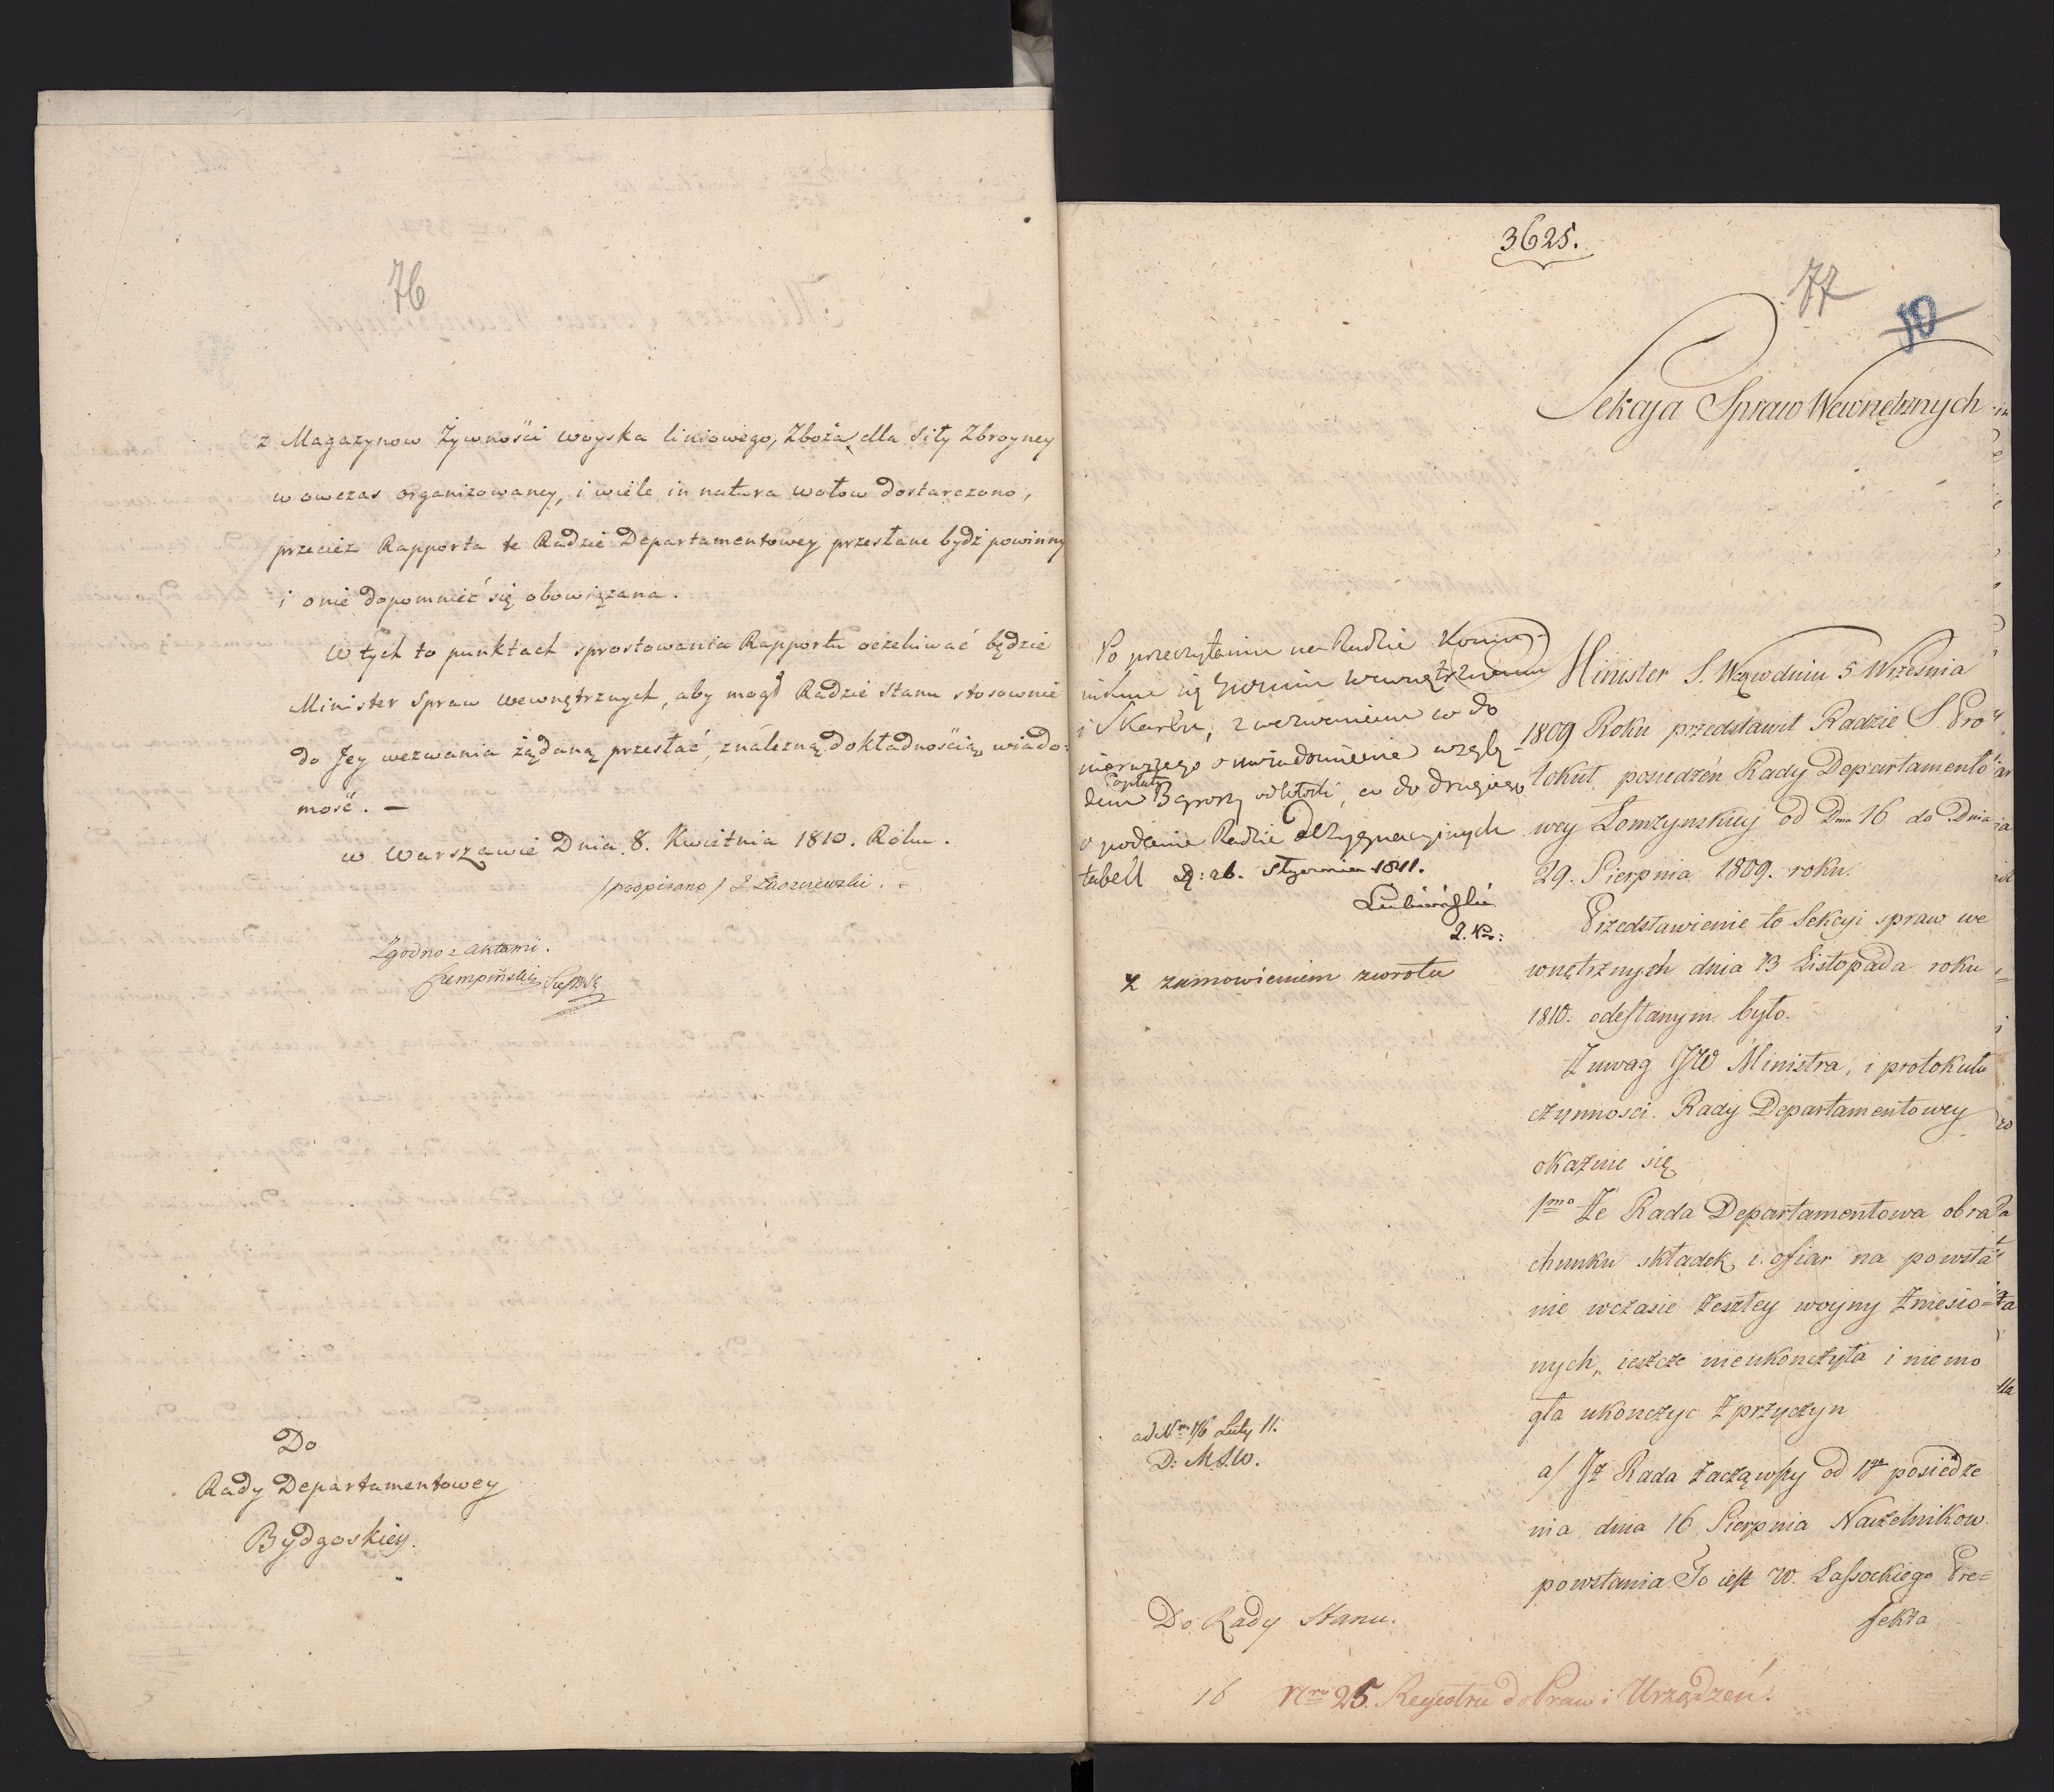 76
z Magazynow Żywności woyska liniowego, Zboża, dla Siły Zbroyney
w owczas organizowaney, i wiele in natura wołow dostarczono,
przecież Rapporta te Radzie Departamentowey przesłane bydź powinny
i onie dopomnieć się obowiązana.
W tych to punktach sprostowania Rapportu oczekiwać będzie
Minister Spraw Wewnętrznych, aby mogł Radzie Stanu stosownie
do Jey wezwania żądaną przesłać, z należną dokładnością, wiado:
mość. —
w Warszawie Dnia 8. Kwietnia 1810. Roku.
/podpisano/ J Łuszczewski.
Zgodno z Aktami.
Do
Rady Departamentowey
Bydgoskiey.
3625.
77
10
Sekcya Spraw Wewnętrznych
Po przeczytaniu na Radzie Kommu-
nikuie się Ministrom Wewnętrznemu
i Skarbu, z wezwaniem co do
pierwszego o uwiadomienie wzglę-
dem opłaty 3 groszy od włoki, co do drugiego
o podanie Radzie dezygnacyinych
tabell D: 26. Stycznia 1811.
Lubieński
z zamowieniem zwrotu
ad Nrm 176 Luty 11.
D: M.S.W.
Do Rady Stanu.
Minister S. Wzy w dniu 5 Września
1809 Roku przedstawił Radzie S. Pro
tokuł posiedzeń Rady Departamento
wey Łomżynskiey od Dnia 16 do Dnia
29. Sierpnia 1809. roku.
Przedstawienie to Sekcyi spraw we
wnętrznych dnia 13 Listopada roku
1810. odesłanym było.
Z uwag JW Ministra, i protokułu
czynnosci Rady Departamentowey
okazuie się
1mo Że Rada Departamentowa obra
chunku składek i ofiar na powsta
nie wczasie zeszłey woyny zniesio=
nych, ieszcze nieukończyła i niemo
gła ukończyc z przyczyn
a/ Jż Rada zacząwszy od 1go posiedze
nia dnia 16 Sierpnia Naczelnikow
powstania To iest W. Lassockiego Pre=
fekta
16 Nro 25. Regestru do Praw i Urządzeń.